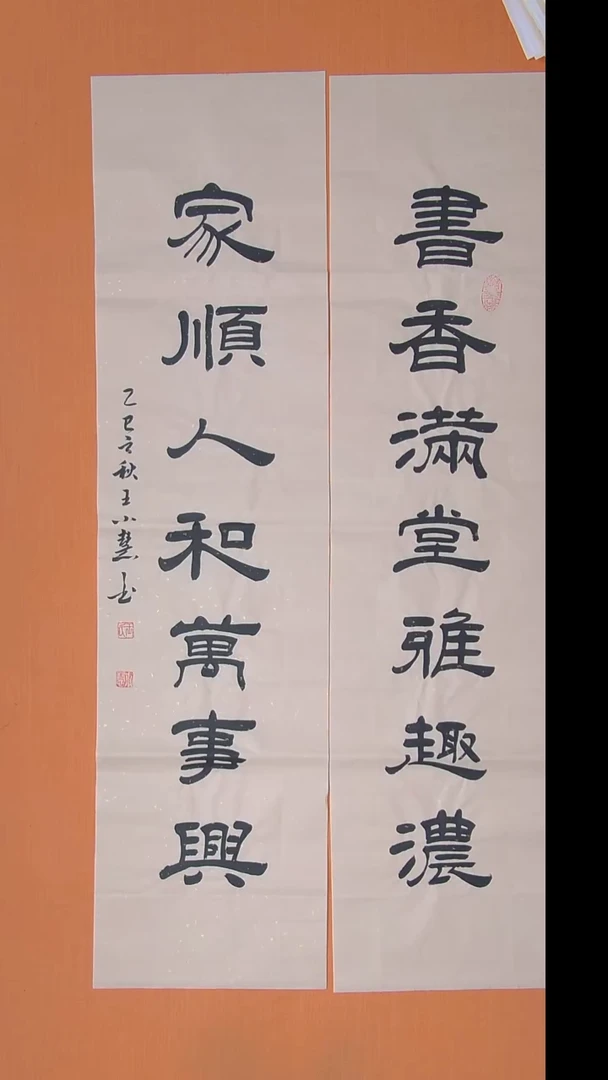 書香滿堂雅趣濃
家順人和萬事興
乙巳立秋王小慧書